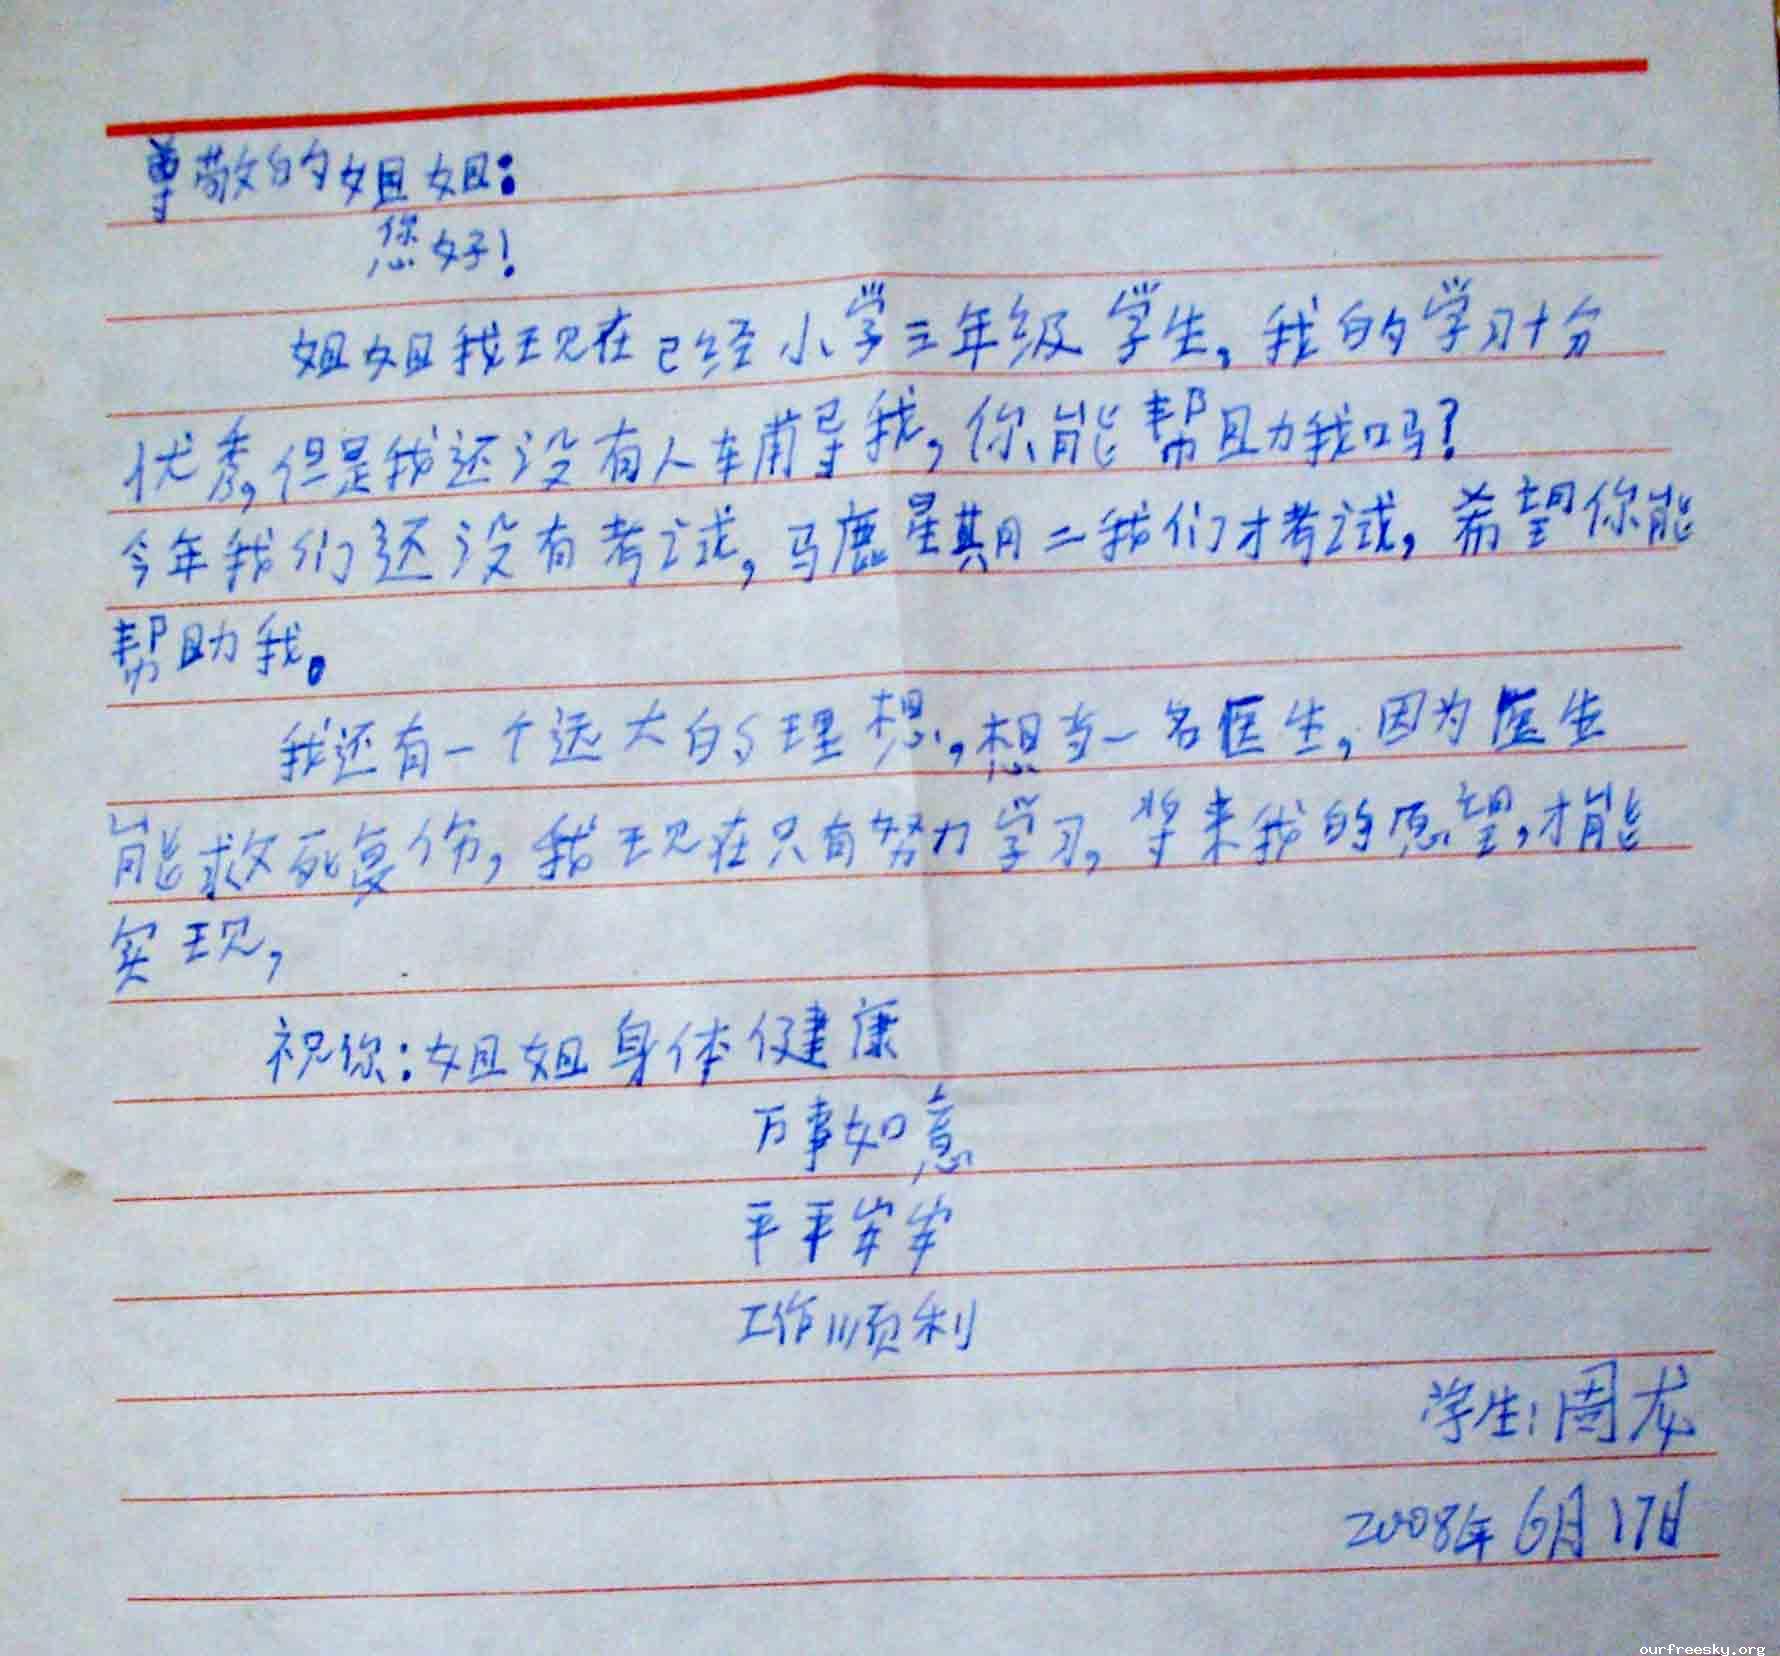 尊敬的姐姐:
您好!
姐姐我现在已经小学三年级学生,我的学习十分
优秀,但是我还没有人辅导我,你能帮助我吗?
今年我们还没有考试,马鹿星期二我们才考试,希望你能
帮助我。
我还有一个远大的理想,想当一名医生,因为医生
能救死复伤,我现在只有努力学习,将来我的愿望,才能
实现,
祝你:姐姐身体健康
万事如意
平平岁岁
工作顺利
学生:周龙
2008年6月17日
ourfreesky.org